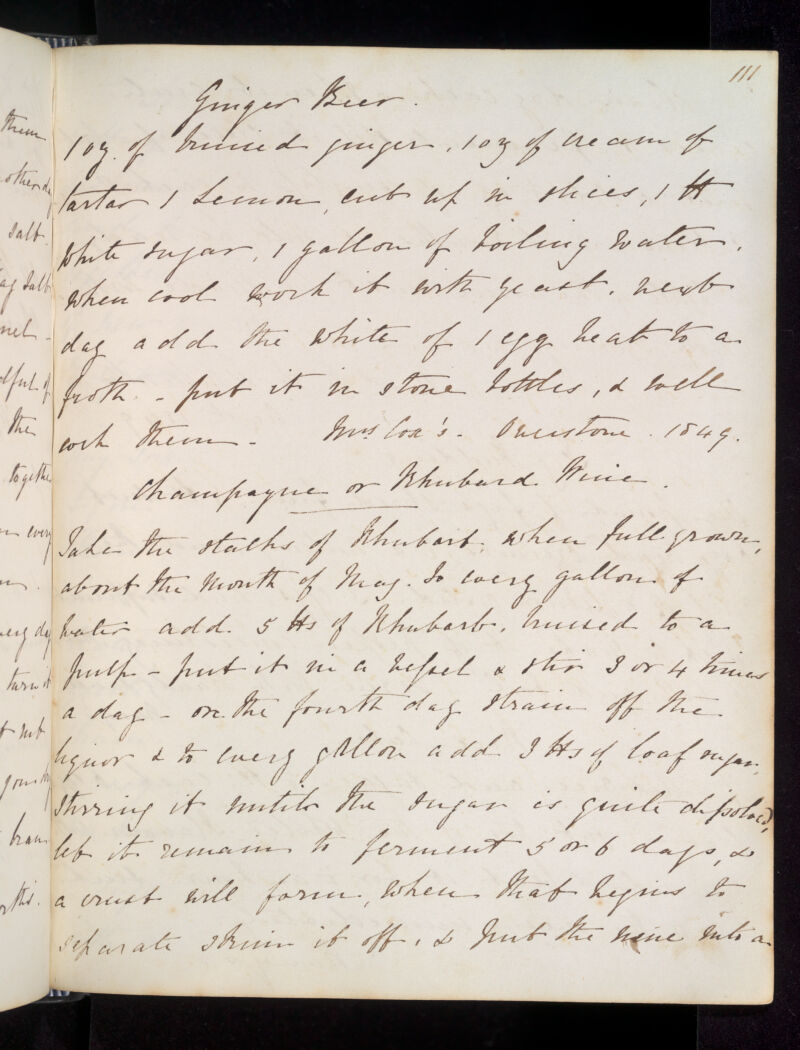 them
other day
salt.
salt
net -
dful of
the
together
every
every day
turn it
not
bran
this.
111
Ginger Beer.
1 oz. of bruised ginger, 1 oz of cream of
tartar 1 Lemon, cut up in slices, 1 lb
white sugar, 1 gallon of boiling water,
when cool work it with yeast, next
day add the white of 1 egg beat to a
froth. - put it in stone bottles, & well
cork them - Mrs Cox's - Overstone. 1849.
Champagne or Rhubard Wine.
Take the stalks of Rhubarb, when full grown,
about the Month of May. To every gallon of
water add 5 lbs of Rhubarb, bruised to a
pulp - put it in a vessel & stir 3 or 4 times
a day - on the fourth day strain off the
liquor & to every gallon add 3 lbs of loaf sugar,
stirring it until the sugar is quite dissolved,
let it remain to ferment 5 or 6 days, &
a crust will form, when that begins to
separate skim it off, & put the wine into a